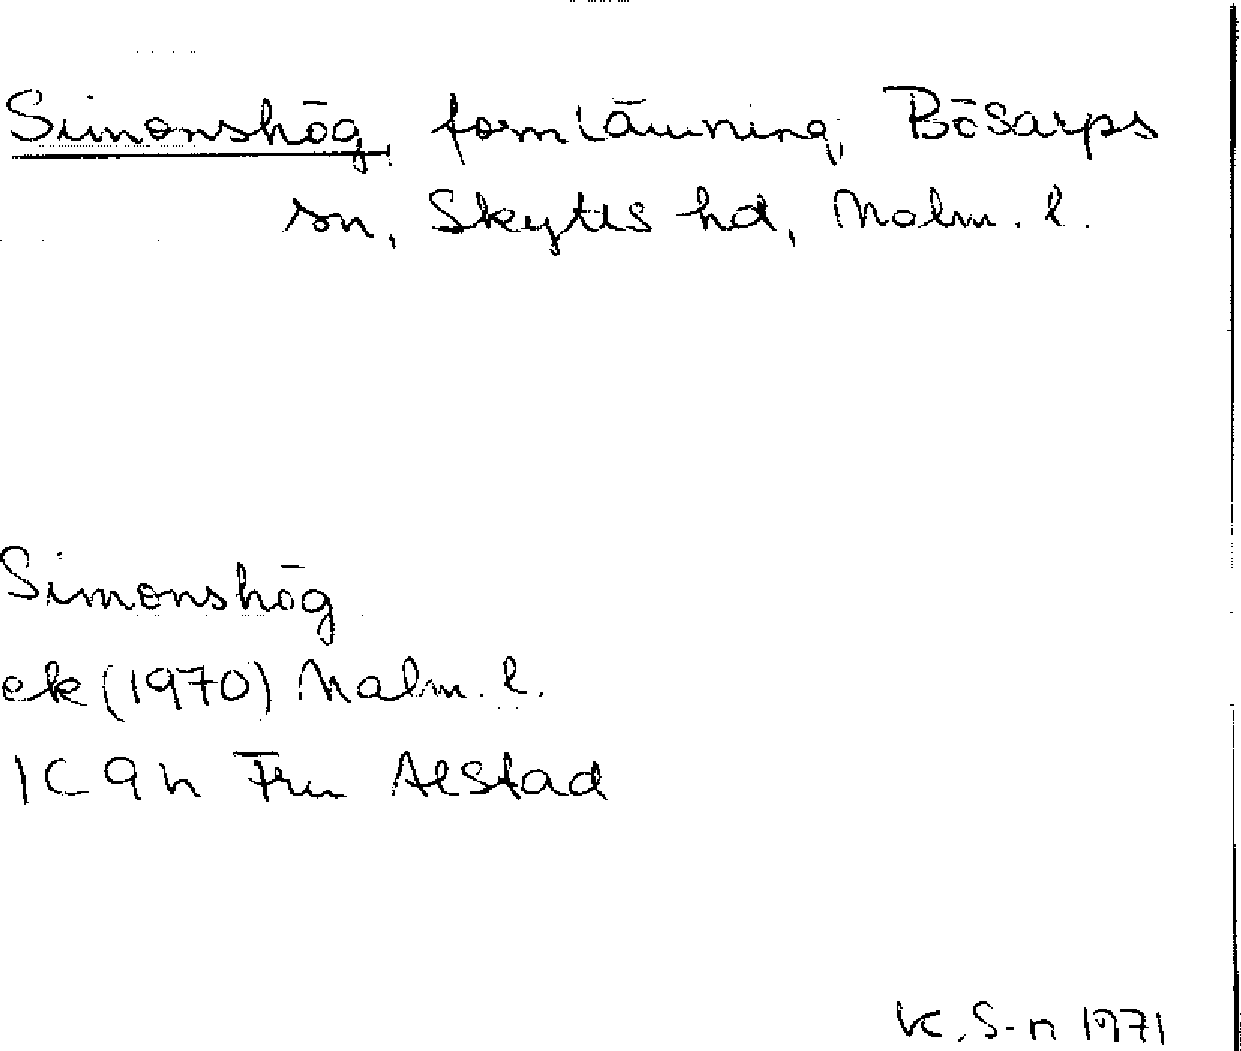 Simonshög fornlämning, Bösarps
sn, Skytts hd, Malm. l.
Simonshög
ek (1970) Malm. l.
1C 9h Fru Alstad
K. S-n 1971